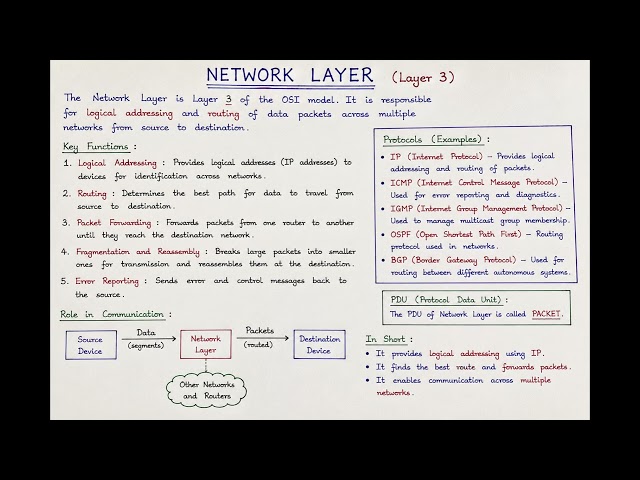 NETWORK LAYER (Layer 3)
The Network Layer is Layer 3 of the OSI model. It is responsible
for logical addressing and routing of data packets across multiple
networks from source to destination.
Key Functions :
1. Logical Addressing : Provides logical addresses (IP addresses) to
devices for identification across networks.
2. Routing : Determines the best path for data to travel from
source to destination.
3. Packet Forwarding : Forwards packets from one router to another
until they reach the destination network.
4. Fragmentation and Reassembly : Breaks large packets into smaller
ones for transmission and reassembles them at the destination.
5. Error Reporting : Sends error and control messages back to
the source.
Role in Communication :
Source
Device
Data
(segments)
Network
Layer
Packets
(routed)
Destination
Device
Other Networks
and Routers
Protocols (Examples) :
• IP (Internet Protocol) – Provides logical
addressing and routing of packets.
• ICMP (Internet Control Message Protocol) –
Used for error reporting and diagnostics.
• IGMP (Internet Group Management Protocol) –
Used to manage multicast group membership.
• OSPF (Open Shortest Path First) – Routing
protocol used in networks.
• BGP (Border Gateway Protocol) – Used for
routing between different autonomous systems.
PDU (Protocol Data Unit) :
The PDU of Network Layer is called PACKET.
In Short :
• It provides logical addressing using IP.
• It finds the best route and forwards packets.
• It enables communication across multiple
networks.